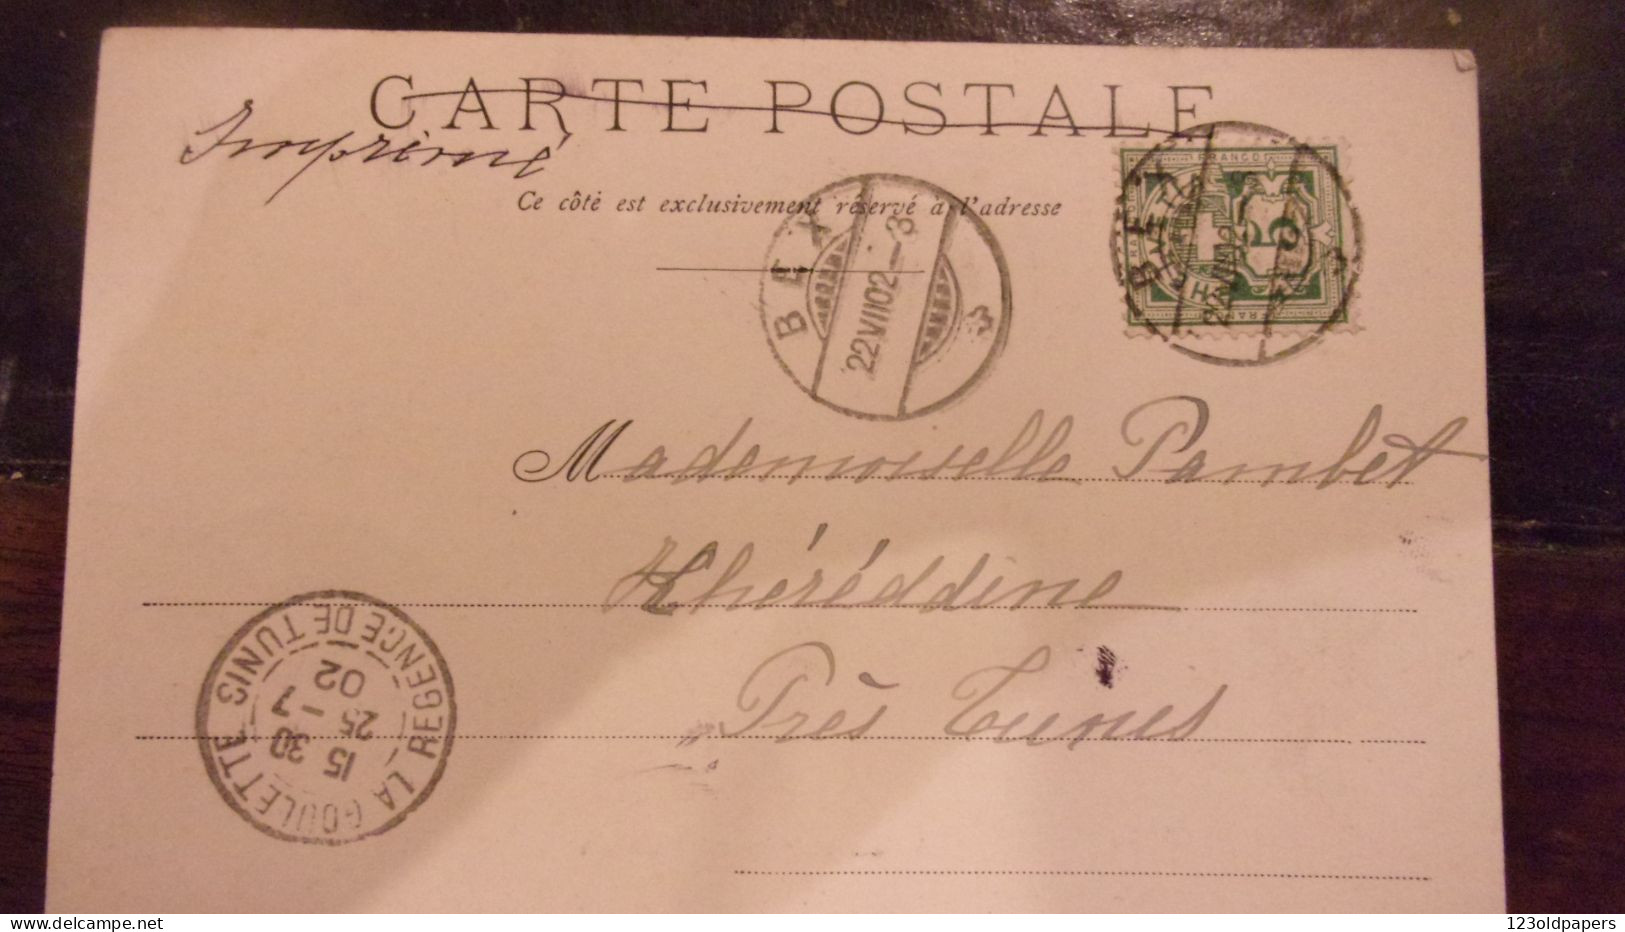 CARTE POSTALE
Imprimé
Ce côté est exclusivement réservé à l'adresse
BEX
22 VII 02 - 8
BEX
FRANCO
5
Mademoiselle Pambet
Khéréddine
Près Tunis
LA GOULETTE
REGENCE DE TUNIS
15 30
25 - 7
02
123oldpapers